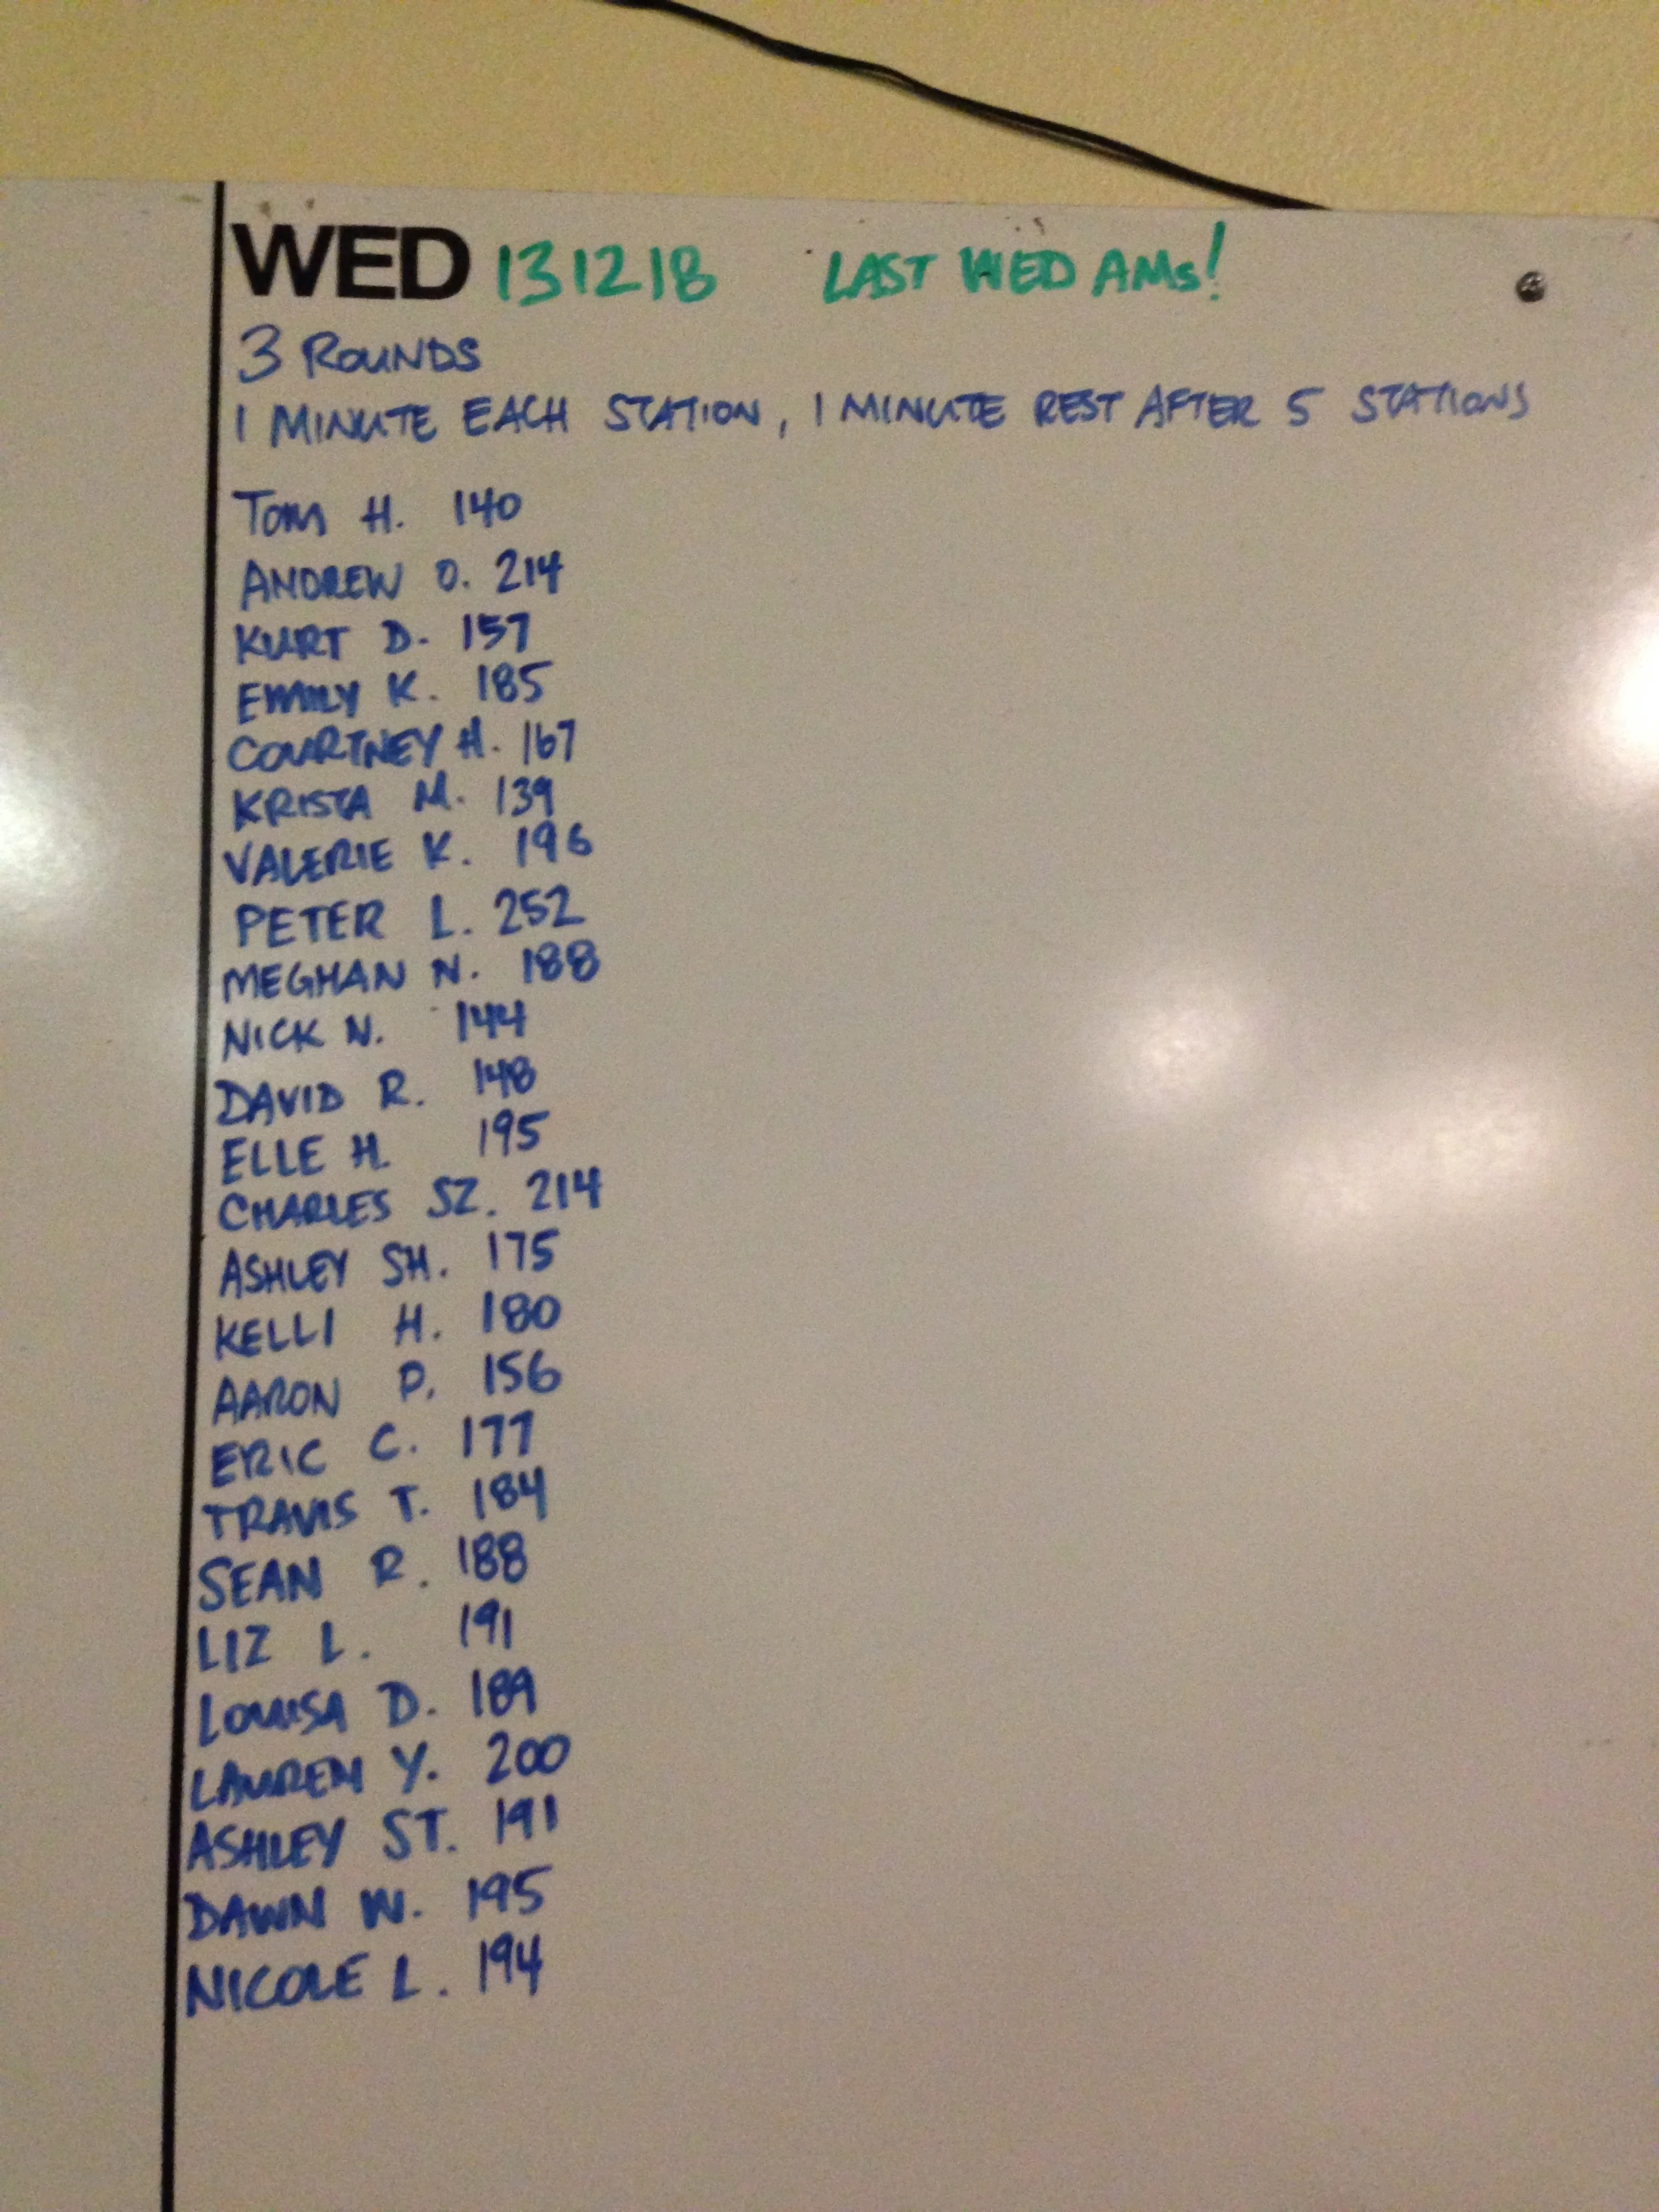 WED 131218 LAST WED AMs!
3 ROUNDS
1 MINUTE EACH STATION, 1 MINUTE REST AFTER 5 STATIONS
TOM H. 140
ANDREW O. 214
KURT D. 157
EMILY K. 185
COURTNEY H. 167
KRISTA M. 139
VALERIE K. 196
PETER L. 252
MEGHAN N. 188
NICK N. 144
DAVID R. 148
ELLE H. 195
CHARLES SZ. 214
ASHLEY SH. 175
KELLI H. 180
AARON P. 156
ERIC C. 177
TRAVIS T. 184
SEAN R. 188
LIZ L. 191
LOUISA D. 189
LAUREN Y. 200
ASHLEY ST. 191
DAWN W. 195
NICOLE L. 194